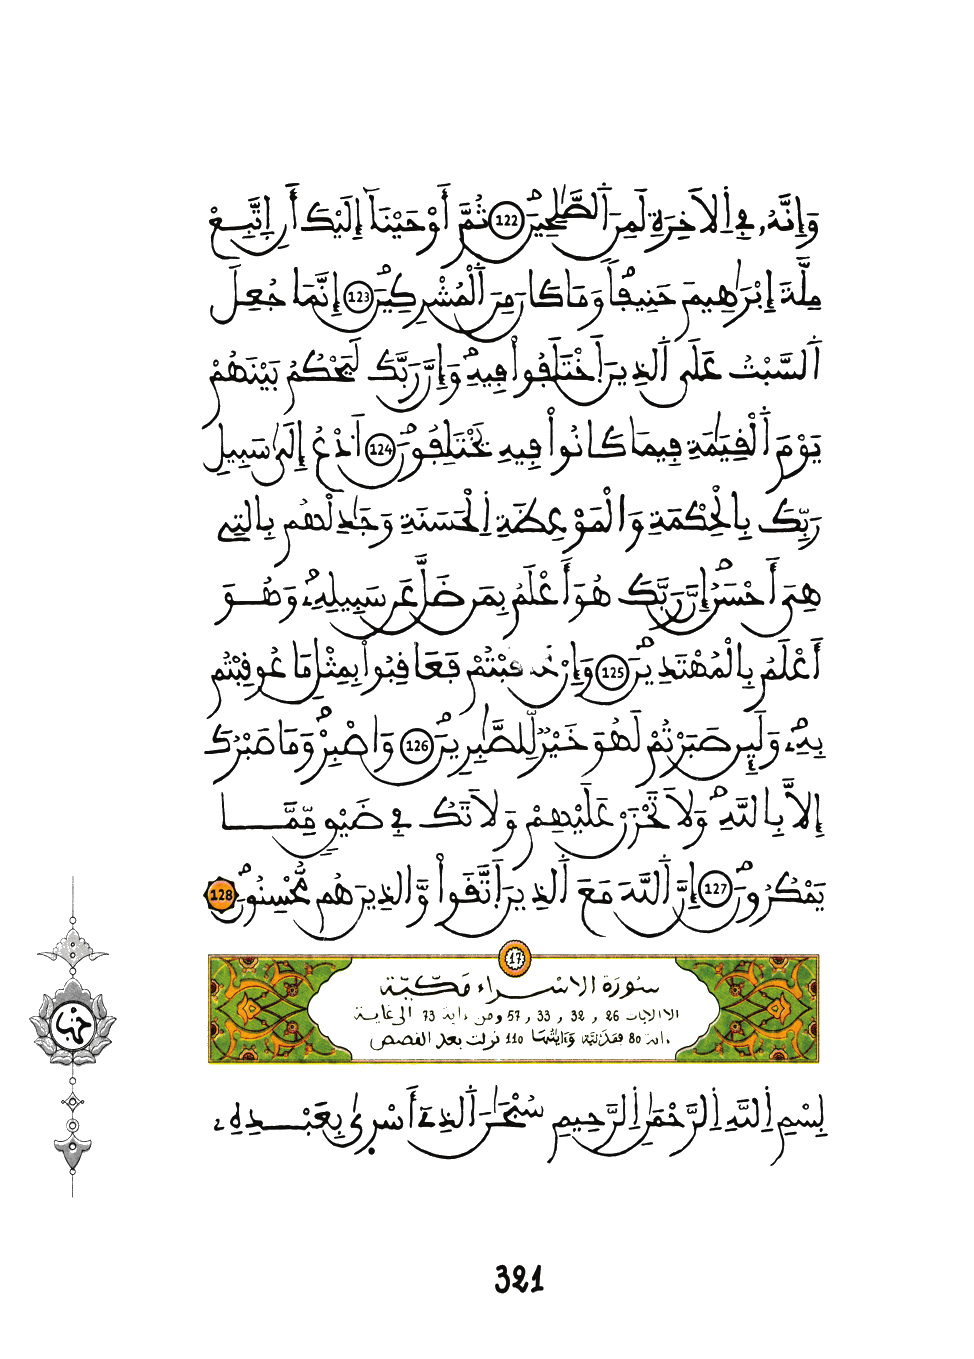 وَإِنَّهُۥ فِي اِ۬لَاخِرَةِ لَمِنَ اَ۬لصَّٰلِحِينَۖ 122 ثُمَّ أَوْحَيْنَآ إِلَيْكَ أَنِ اِتَّبِعْ
مِلَّةَ إِبْرَٰهِيمَ حَنِيفاٗۖ وَمَا كَانَ مِنَ اَ۬لْمُشْرِكِينَۖ 123 إِنَّمَا جُعِلَ
اَ۬لسَّبْتُ عَلَى اَ۬لذِينَ اَ۪خْتَلَفُواْ فِيهِۖ وَإِنَّ رَبَّكَ لَيَحْكُمُ بَيْنَهُمْ
يَوْمَ اَ۬لْقِيَٰمَةِ فِيمَا كَانُواْ فِيهِ يَخْتَلِفُونَۖ 124 اَ۟دْعُ إِلَىٰ سَبِيلِ
رَبِّكَ بِالْحِكْمَةِ وَالْمَوْعِظَةِ اِ۬لْحَسَنَةِ وَجَٰدِلْهُم بِالتِے
هِيَ أَحْسَنُۖ إِنَّ رَبَّكَ هُوَ أَعْلَمُ بِمَن ضَلَّ عَن سَبِيلِهِۦۖ وَهُوَ
أَعْلَمُ بِالْمُهْتَدِينَۖ 125 وَإِنْ عَاقَبْتُمْ فَعَاقِبُواْ بِمِثْلِ مَا عُوقِبْتُم
بِهِۦۖ وَلَئِن صَبَرْتُمْ لَهُوَ خَيْرٞ لِّلصَّٰبِرِينَۖ 126 وَاصْبِرْۖ وَمَا صَبْرُكَ
إِلَّا بِاللَّهِۖ وَلَا تَحْزَنْ عَلَيْهِمْ وَلَا تَكُ فِي ضَيْقٖ مِّمَّا
يَمْكُرُونَۖ 127 إِنَّ اَ۬للَّهَ مَعَ اَ۬لذِينَ اَ۪تَّقَواْ وَّالذِينَ هُم مُّحْسِنُونَۖ 128
17
سُورَة الاسْراء مَكّيّة
الا الايات 26 و 32 و 33 و 57 ومن ءاية 73 الى غاية
ءاية 80 فمدنيّة وءاياتها 110 نزلت بعد القصص
بِسْمِ اِ۬للَّهِ اِ۬لرَّحْمَٰنِ اِ۬لرَّحِيمِ سُبْحَٰنَ اَ۬لذِےٓ أَسْر۪ىٰ بِعَبْدِهِۦ
حزب
321